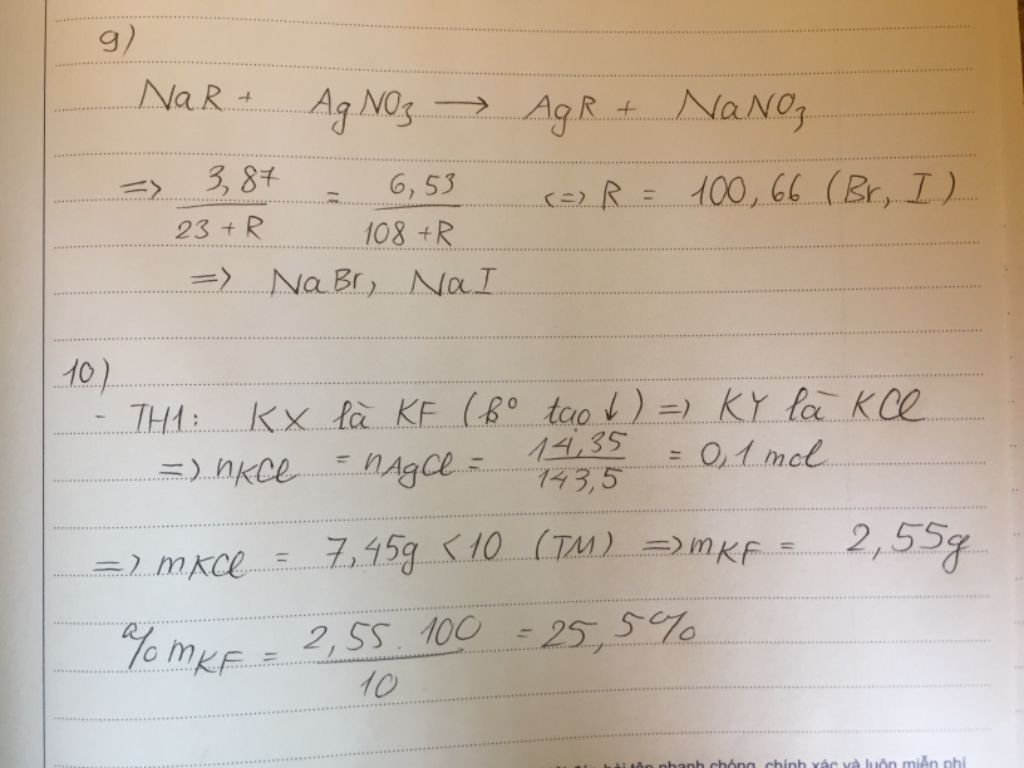 9)
NaR + AgNO₃ → AgR + NaNO₃
=> 3,87 / (23 + R) = 6,53 / (108 + R) <=> R = 100,66 (Br, I)
=> NaBr, NaI
10)
- TH1: KX là KF (k° tạo ↓) => KY là KCl
=> nKCl = nAgCl = 14,35 / 143,5 = 0,1 mol
=> mKCl = 7,45g < 10 (TM) => mKF = 2,55g
% mKF = 2,55 . 100 / 10 = 25,5%
bài tập nhanh chóng, chính xác và luôn miễn phí